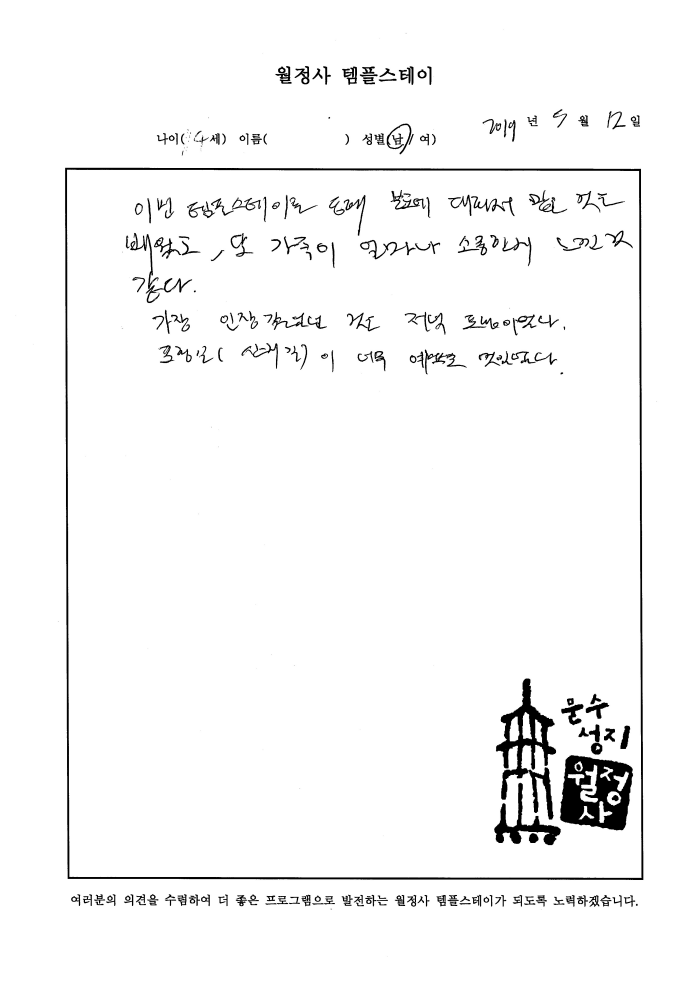 월정사 템플스테이
나이( 4세) 이름( ) 성별(남/여) 2019년 5월 12일
이번 템플스테이를 통해 불교에 대해서 많은 것을
배웠고, 또 가족이 얼마나 소중한지 느낀 것
같다.
가장 인상깊었던 것은 저녁 이었다.
( ) 이 너무 예쁘고 멋있었다.
문수
성지
월정
사
여러분의 의견을 수렴하여 더 좋은 프로그램으로 발전하는 월정사 템플스테이가 되도록 노력하겠습니다.